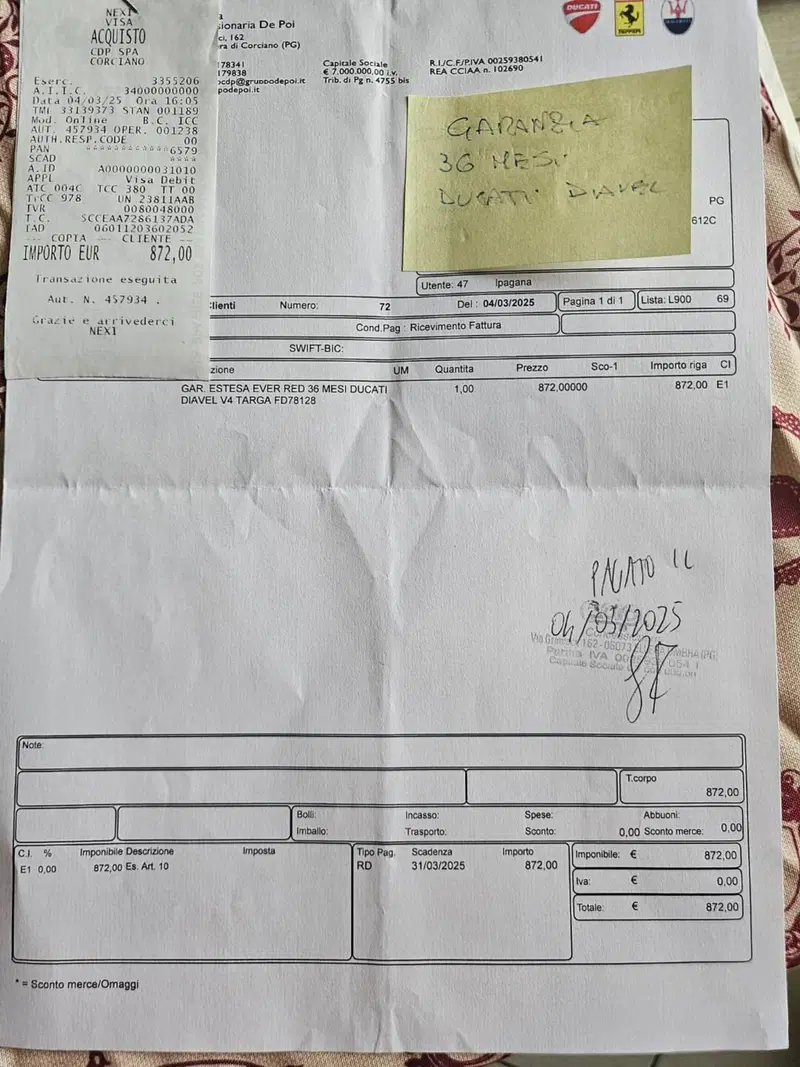 NEXI
VISA
ACQUISTO
CDP SPA
CORCIANO
Eserc. 3355206
A.I.I.C. 34000000000
Data 04/03/25 Ora 16:05
TMl 33139373 STAN 001189
Mod. Online B.C. ICC
AUT. 457934 OPER. 001238
AUTH.RESP.CODE 00
PAN ************6579
SCAD ****
A.ID A0000000031010
APPL Visa Debit
ATC 004C TCC 380 TT 00
TrCC 978 UN 23811AAB
TVR 0080048000
T.C. 5CCEAA7286137ADA
IAD 06011203602052
--- COPIA --- CLIENTE ---
IMPORTO EUR 872,00
Transazione eseguita
Aut. N. 457934 .
Grazie e arrivederci
NEXI
ionaria De Poi
ci, 162
ra di Corciano (PG)
178341
179838
ocdp@gruppodepoi.it
podepoi.it
Capitale Sociale
€ 7.000.000,00 i.v.
Trib. di Pg n. 4755 bis
R.I./C.F./P.IVA 00259380541
REA CCIAA n. 102690
DUCATI
Ferrari
MASERATI
GARANZIA
36 MESI
DUCATI DIAVEL
PG
612C
Utente: 47 lpagana
lienti Numero: 72 Del : 04/03/2025 Pagina 1 di 1 Lista: L900 69
Cond.Pag : Ricevimento Fattura
SWIFT-BIC:
zione UM Quantita Prezzo Sco-1 Importo riga CI
GAR. ESTESA EVER RED 36 MESI DUCATI 1,00 872,00000 872,00 E1
DIAVEL V4 TARGA FD78128
PAGATO IL
04/03/2025
Note:
T.corpo
872,00
Bolli: Incasso: Spese: Abbuoni:
Imballo: Trasporto: Sconto: 0,00 Sconto merce: 0,00
C.I. % Imponibile Descrizione Imposta
E1 0,00 872,00 Es. Art. 10
Tipo Pag. Scadenza Importo
RD 31/03/2025 872,00
Imponibile: € 872,00
Iva: € 0,00
Totale: € 872,00
* = Sconto merce/Omaggi